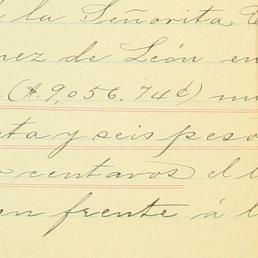 la Señorita
nez de León en
($9,056.74¢)
ta y seis peso
centavos el
en frente á l